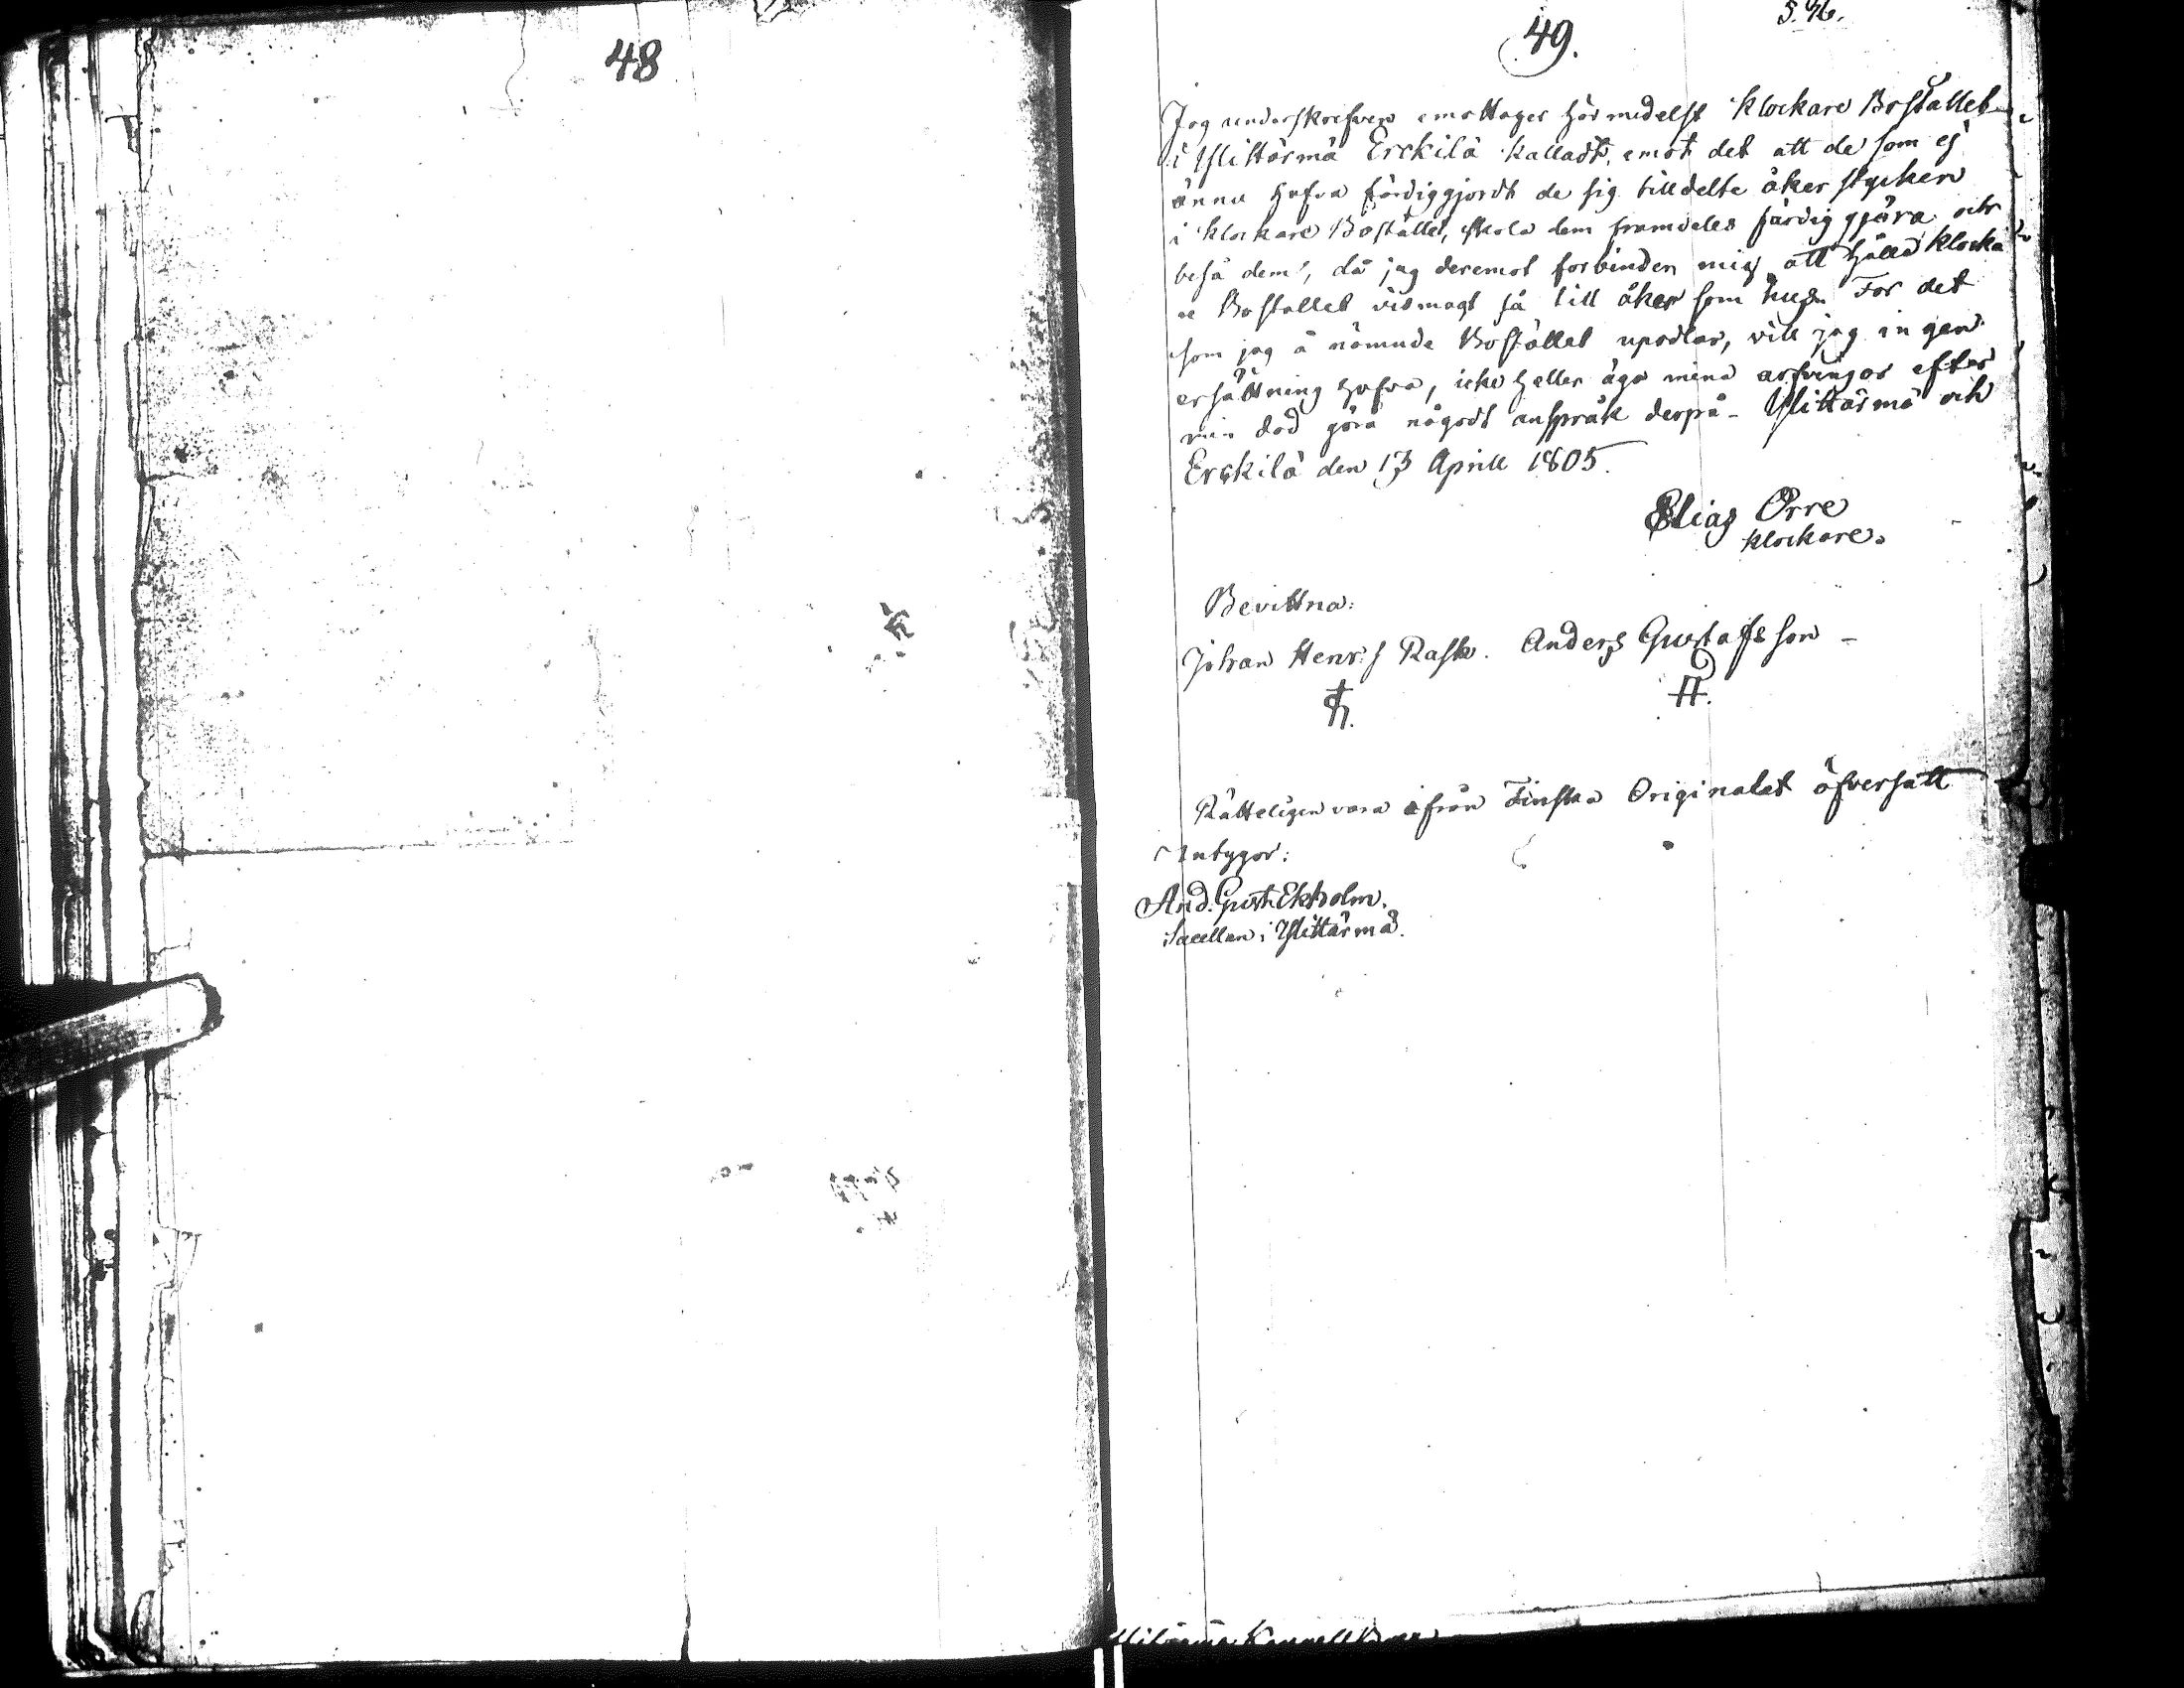 48
49.
Jag underskrefven emottager härmedelst Klockare Bostället
i Ylistärmä Erckilä kalladt, emot det att de som ej
ännu hafva färdiggjordt de sig tilldelte åker stycken
i Klockare Bostället, skola dem framdeles färdig gjöra och
beså dem, då jag deremot forbinder mig att hålla Klocka
re Bostallet vidmagt så till åker som hus. For det
som jag å nämnde Bostället uprodlar, vill jag in gen
ersättning hafva, icke heller äga mina arfvingar efter
min död göra någodt anspråk derpå - Ylistärmä och
Erckilä den 13 Aprill 1805.
Elias Orre
klockare.
Bevittna:
Johan Henr: s Rask. Anders Gustafsson -
Rätteligen vara ifrån Finska Originalet öfversatt
intygar:
And. Gust. Ekholm.
Sacellan i Ylistärmä.